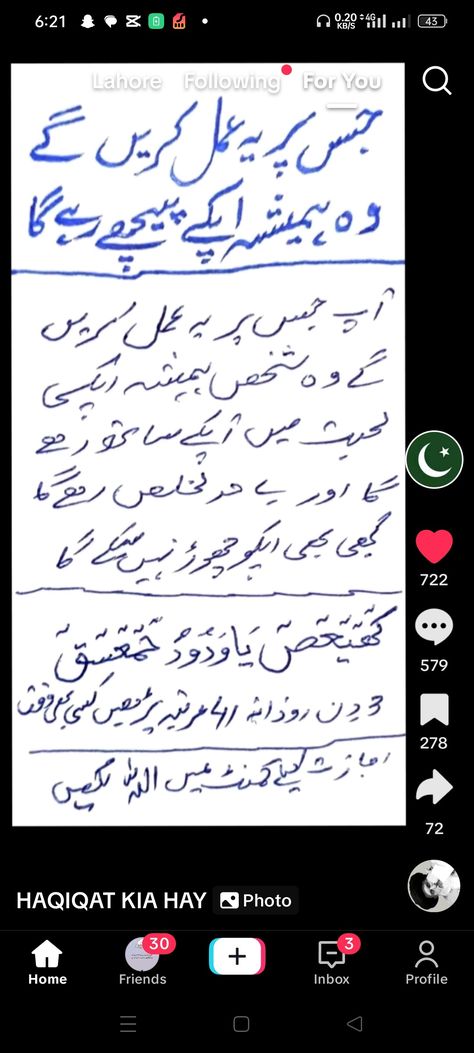 6:21
0.20 KB/S 4G 43
Lahore Following For You
جس پر یہ عمل کریں گے
وہ ہمیشہ آپکے پیچھے رہے گا
آپ جس پر یہ عمل کریں
گے وہ شخص ہمیشہ آپکی
محبت میں آپکے ساتھ رہے
گا اور بے حد مخلص رہے گا
کبھی بھی آپکو چھوڑ نہیں سکے گا
كٓهٰيٰعٓصٓ يَا وَدُوْدُ حٰمٓعٓسٓقٓ
3 دن روزانہ 41 مرتبہ پڑھیں کسی بھی وقت
اجازت کیلئے کمنٹ میں اللہ لکھیں
722
579
278
72
HAQIQAT KIA HAY Photo
30 3
Home Friends Inbox Profile